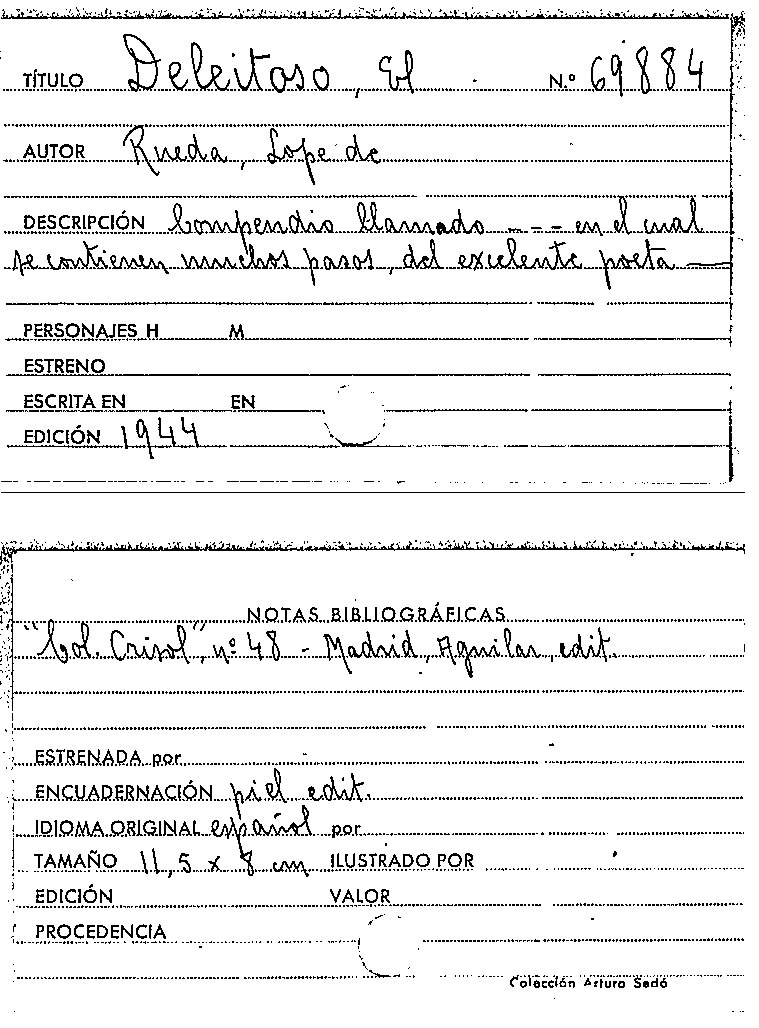 TÍTULO Deleitoso, El N.º 69884
AUTOR Rueda, Lope de
DESCRIPCIÓN Compendio llamado --- en el cual
se contienen muchos pasos, del excelente poeta —
PERSONAJES H M
ESTRENO
ESCRITA EN EN
EDICIÓN 1944
NOTAS BIBLIOGRÁFICAS
"Col. Crisol", nº 48 - Madrid, Aguilar, edit.
ESTRENADA por
ENCUADERNACIÓN piel edit.
IDIOMA ORIGINAL español por
TAMAÑO 11,5 x 8 cm ILUSTRADO POR
EDICIÓN VALOR
PROCEDENCIA
Colección Arturo Sedó